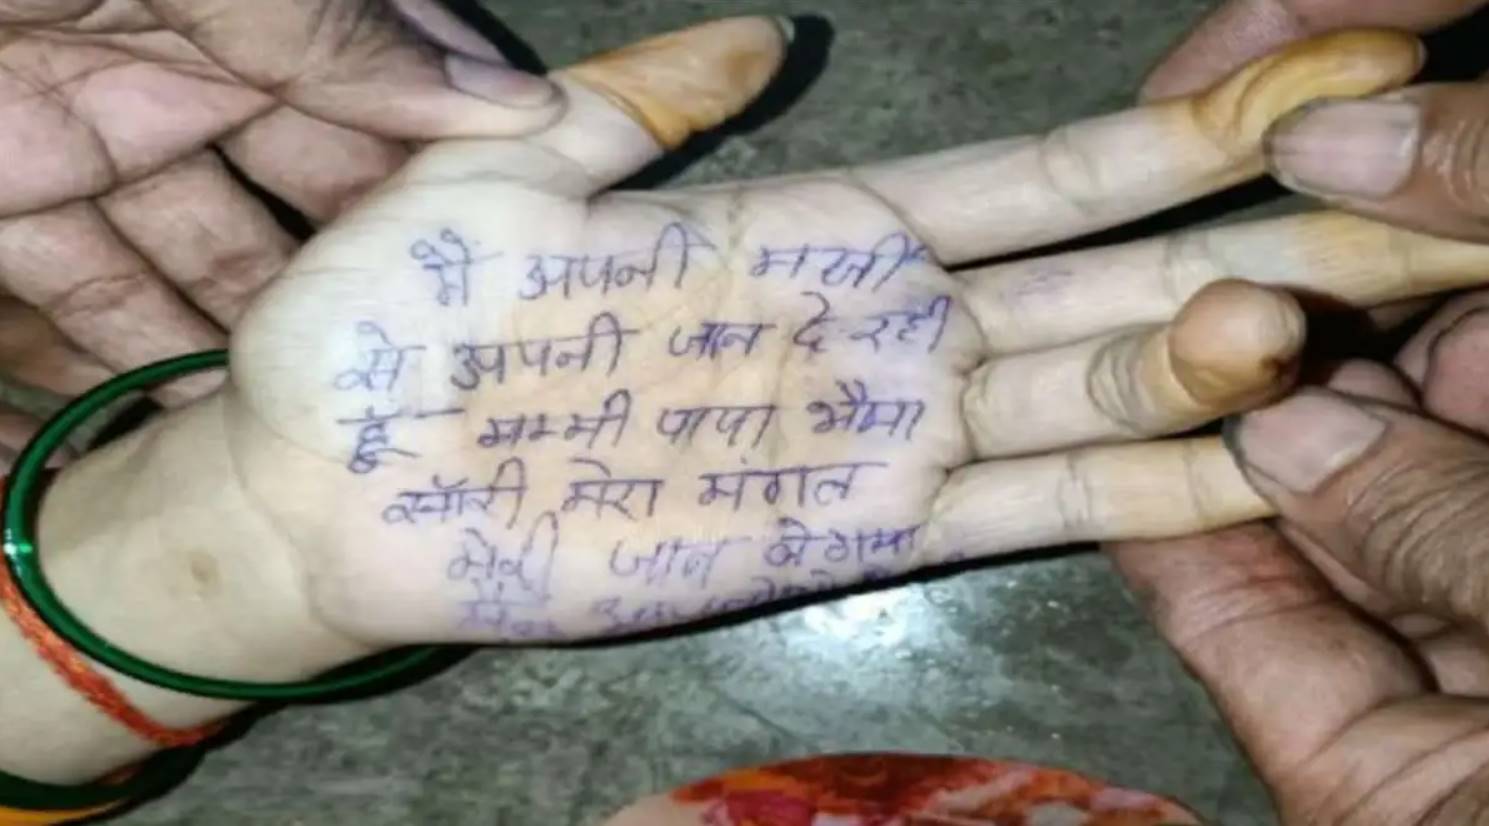 मैं अपनी मर्जी
से अपनी जान दे रही
हूँ मम्मी पापा भैया
सॉरी मेरा मंगल
मेरी जान ले गया